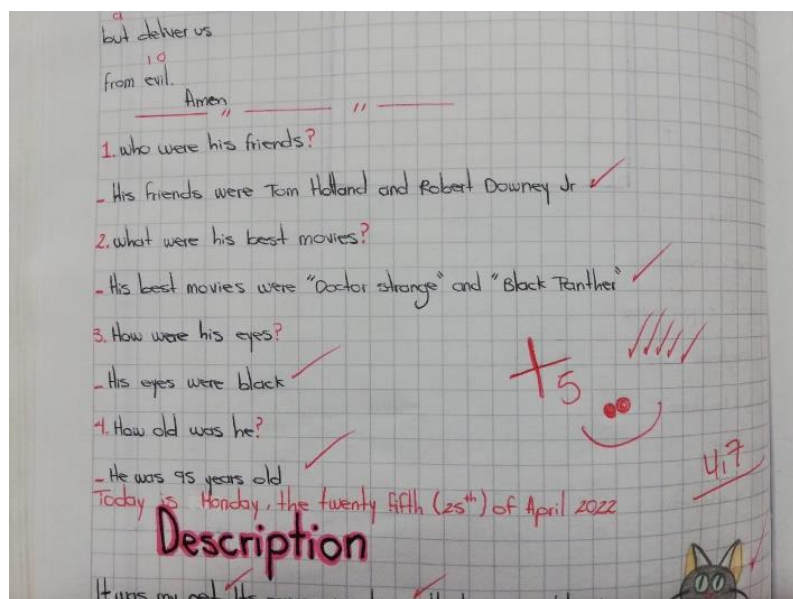 9
but deliver us
10
from evil.
Amen
1. who were his friends?
- His friends were Tom Holland and Robert Downey Jr
2. what were his best movies?
- His best movies were "Doctor strange" and "Black Panther"
3. How were his eyes?
- His eyes were black
+5
4. How old was he?
- He was 95 years old
4,7
Today is Monday, the twenty fifth (25th) of April 2022
Description
It was my pet. Its